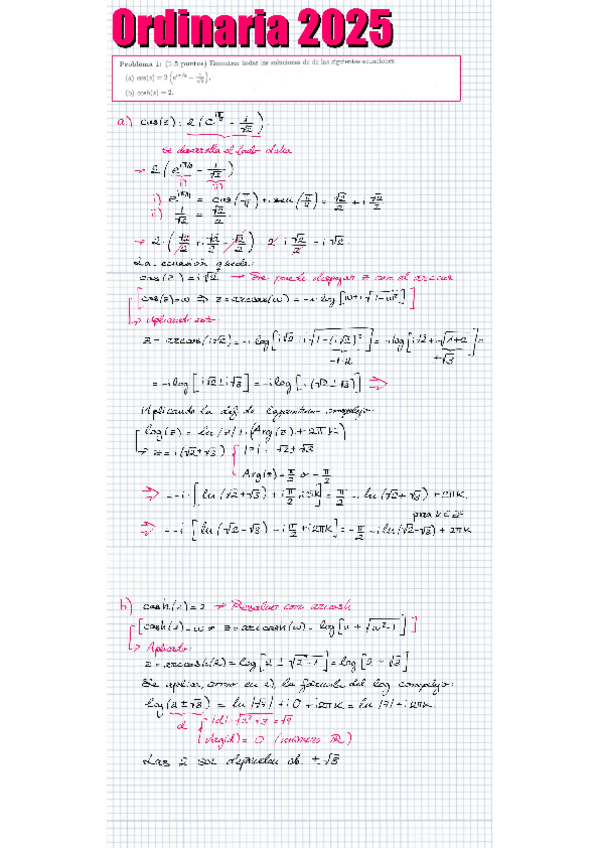 Ordinaria 2025
Problema 1: (1.5 puntos) Encontrar todas las soluciones de de las siguientes ecuaciones:
(a) cos(z) = 2 (e^{iπ/4} − 1/√2),
(b) cosh(z) = 2.
a) cos(z) = 2 (e^{iπ/4} - 1/√2).
se desarrolla el lado dcha
→ 2 (e^{iπ/4} - 1/√2)
i) ii)
i) e^{iπ/4} = cos(π/4) + i sen(π/4) = √2/2 + i √2/2
ii) 1/√2 = √2/2
→ 2·(√2/2 + i√2/2 - √2/2) 2 i √2/2 = i√2
La ecuación queda:
cos(z) = i√2 → Se puede despejar z con el arccos
[cos(z) = w ⇒ z = arccos(w) = -i log[w + i√(1-w²)]]
↳ Aplicando esto:
z = arccos(i√2) = -i log[i√2 + i√(1-(i√2)²)] = -i log[i√2 + i√(1+2)] =
±√3
= -i log[i√2 ± i√3] = -i log[i(√2 ± √3)] ⇒
Aplicando la def de logaritmo complejo:
log(z) = ln|z| + i(Arg(z) + 2πk)
↳ z = i(√2 ± √3) { |z| = √2 ± √3
Arg(z) = π/2 o -π/2
⇒ = -i·[ln(√2+√3) + iπ/2 + i2πk] = π/2 - i ln(√2+√3) + 2πk,
para k ∈ Z
⇒ = -i·[ln(√2-√3) - iπ/2 + i2πk] = -π/2 - i ln(√2-√3) + 2πk
b) cosh(z) = 2 → Resolver con arccosh
[cosh(z) = w ⇒ z = arccosh(w) = log[w + √(w²-1)]]
↳ Aplicando:
z = arccosh(2) = log[2 ± √(2²-1)] = log[2 ± √3]
Se aplica, como en a), la fórmula del log complejo:
log(2 ± √3) = ln|√7| + i0 + i2πk = ln|√7| + i2πk.
d { |d| = √(2²+3) = √7
Arg(d) = 0 (número R)
Las 2 sol dependen de ±√3